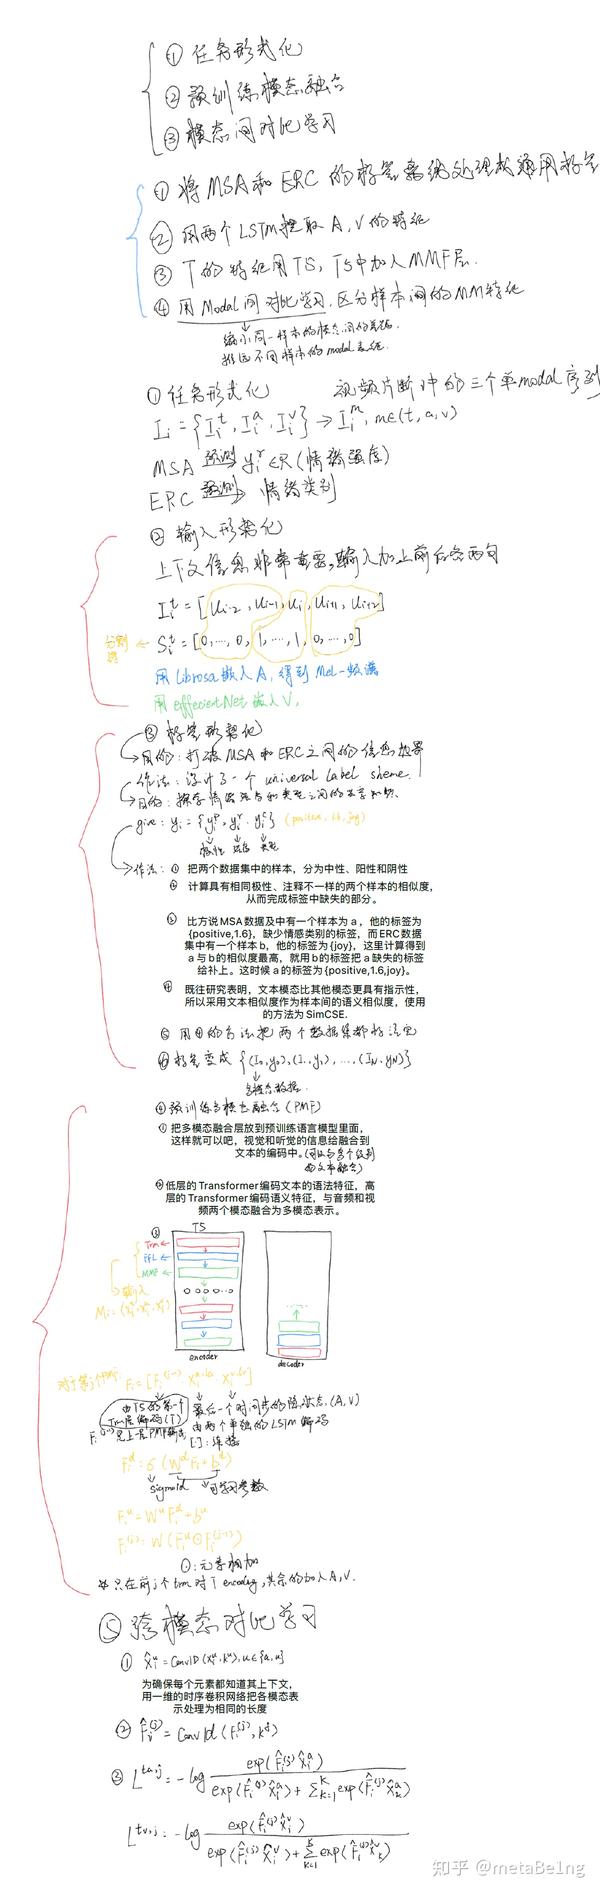 ① 任务形式化
② 预训练模态融合
③ 模态间对比学习
① 将MSA和ERC的标签离线处理成通用标签
② 用两个LSTM提取A,V的特征
③ T的特征用T5, T5中加入MMF层.
④ 用Modal间对比学习.区分样本间的MM特征
缩小同一样本的模态间的差距.
推远不同样本的modal表征.
① 任务形式化 视频片断中的三个单modal序列
Ii = {Iᵢᵗ, Iᵢᵃ, Iᵢᵛ} → Iᵢᵐ, m∈(t, a, v)
MSA 预测→ yᵢʳ∈R (情绪强度)
ERC 预测→ 情绪类别
② 输入形式化
上下文信息非常重要,输入加上前后各两句
Iᵢᵗ = [ui-2, ui-1, ui, ui+1, ui+2]
分割 ← Sᵢᵗ = [0,…,0, 1,…,1, 0,…,0]
用Librosa嵌入A, 得到Mel-频谱
用effecientNet嵌入V,
③ 标签形式化
目的: 打破MSA和ERC之间的信息边界
作法: 设计了一个universal label sheme.
目的: 探索情绪 之间的共享知识.
give: yi = {yᵢᵖ, yᵢʳ, yᵢᶜ} (positive, 1.6, joy)
极性 强度 类别
作法: ① 把两个数据集中的样本,分为中性、阳性和阴性
② 计算具有相同极性、注释不一样的两个样本的相似度,
从而完成标签中缺失的部分。
③ 比方说MSA数据及中有一个样本为a,他的标签为
{positive,1.6},缺少情感类别的标签,而ERC数据
集中有一个样本b,他的标签为{joy},这里计算得到
a与b的相似度最高,就用b的标签把a缺失的标签
给补上。这时候a的标签为{positive,1.6,joy}。
④ 既往研究表明,文本模态比其他模态更具有指示性,
所以采用文本相似度作为样本间的语义相似度,使用
的方法为SimCSE.
⑤ 用④的方法把两个数据集都标注完
⑥ 标签变成 {(I₀,y₀),(I₁,y₁),…,(IN,yN)}
多模态数据.
④ 预训练多模态融合 (PMF)
① 把多模态融合层放到预训练语言模型里面,
这样就可以吧,视觉和听觉的信息给融合到
文本的编码中。(可以与多个级别
的文本融合)
② 低层的Transformer编码文本的语法特征,高
层的Transformer编码语义特征,与音频和视
频两个模态融合为多模态表示。
③ T5
Trm←
FFL←
MMF←
输入
encoder
decoder
Fi = [Fᵢ⁽ʲ⁻¹⁾
由T5的第一个
Trm层编码(T) 最后一个时间步的隐状态, (A,V)
由两个单独的LSTM编码
[·]: 连接
Fᵢᵈ = σ (WᵈFi + bᵈ)
sigmoid 可学习参数
Fᵢᵘ = WᵘFᵢᵈ + bᵘ
Fᵢ⁽ʲ⁾ = W(Fᵢᵘ ⊙ Fᵢ⁽ʲ⁻¹⁾)
⊙: 元素相加
☆ 只在前j个trm对T encoding, 其余的加入A,V.
⑤ 跨模态对比学习
① X̂ᵢᵘ = Conv1D(xᵢᵘ, kᵘ), u∈{a,v}
为确保每个元素都知道其上下文,
用一维的时序卷积网络把各模态表
示处理为相同的长度
② F̂ᵢ⁽ʲ⁾ = Conv1d (Fᵢ⁽ʲ⁾, kᶠ)
③ Lᵗᵃ,ʲ = -log exp(F̂ᵢ⁽ʲ⁾X̂ᵢᵃ) / exp(F̂ᵢ⁽ʲ⁾X̂ᵢᵃ) + Σₖ₌₁ᴷ exp(F̂ᵢ⁽ʲ⁾X̂ₖᵃ)
Lᵗᵛ,ʲ = -log exp(F̂ᵢ⁽ʲ⁾X̂ᵢᵛ) / exp(F̂ᵢ⁽ʲ⁾X̂ᵢᵛ) + Σₖ₌₁ᴷ exp(F̂ᵢ⁽ʲ⁾X̂ₖᵛ)
知乎 @metaBe1ng